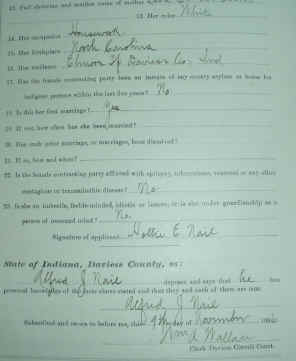 12. Full christian and maiden name of mother
13. Her color White
14. Her occupation Housework
15. Her birthplace North Carolina
16. Her residence Elmore Tp Daviess Co. Ind
17. Has the female contracting party been an inmate of any county asylum or home for
indigent persons within the last five years? No
18. Is this her first marriage? Yes
19. If not, how often has she been married?
20. Has such prior marriage, or marriages, been dissolved?
21. If so, how and when?
22. Is the female contracting party afflicted with epilepsy, tuberculosis, venereal or any other
contagious or transmissible disease? No
23. Is she an imbecile, feeble-minded, idiotic or insane, or is she under guardianship as a
person of unsound mind? No
Signature of applicant E. Nail
State of Indiana, Daviess County, ss:
Alfred J Nail deposes and says that he has
personal knowledge of the facts above stated and that they and each of them are true.
Alfred J Nail
Subscribed and sworn to before me, this 9th day of November
Wallace
Clerk Daviess Circuit Court.